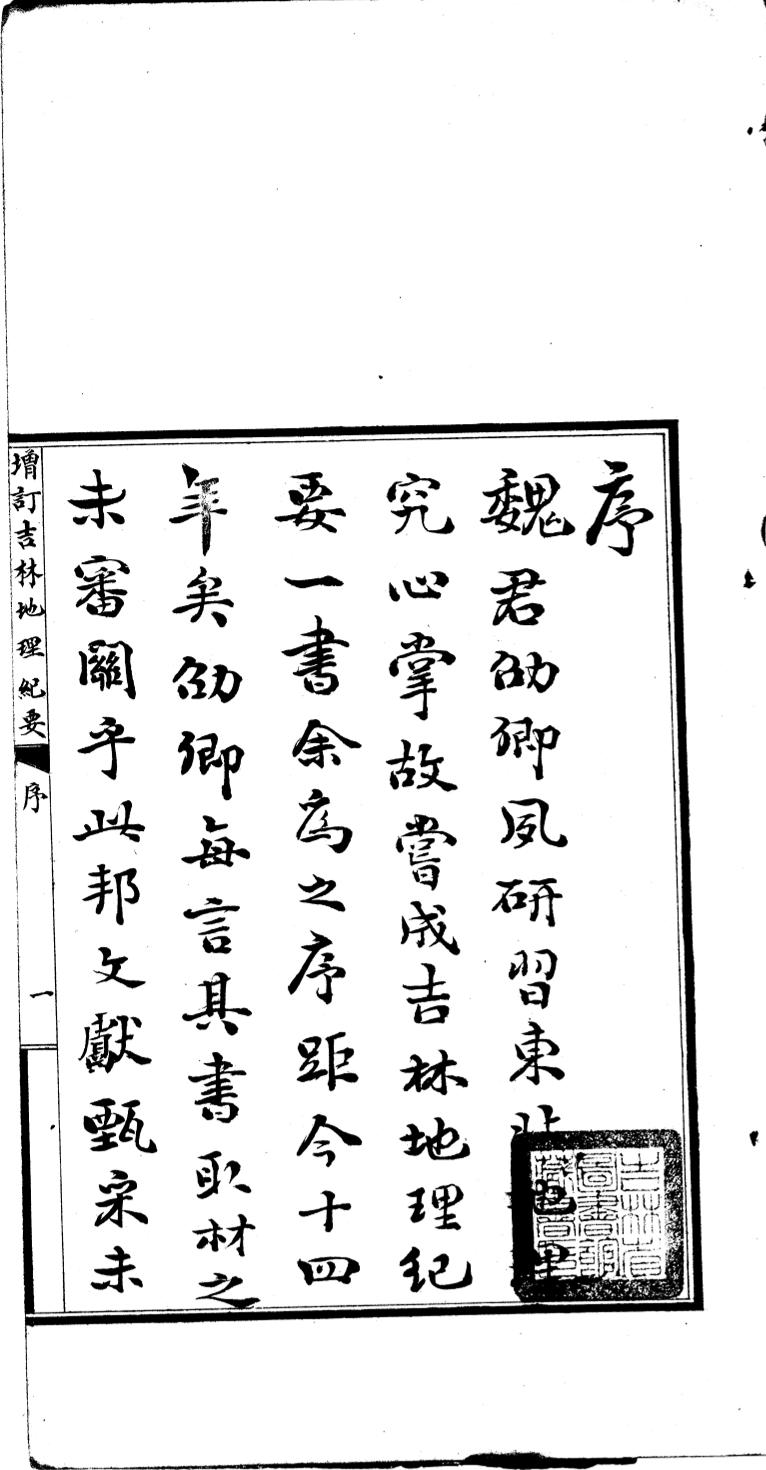 序
魏君劭卿夙研習東北地理
究心掌故嘗成吉林地理紀
要一書余為之序距今十四
年矣劭卿每言其書取材之
未審關乎此邦文獻甄采未
增訂吉林地理紀要
序
一
吉林省
圖書館
藏書